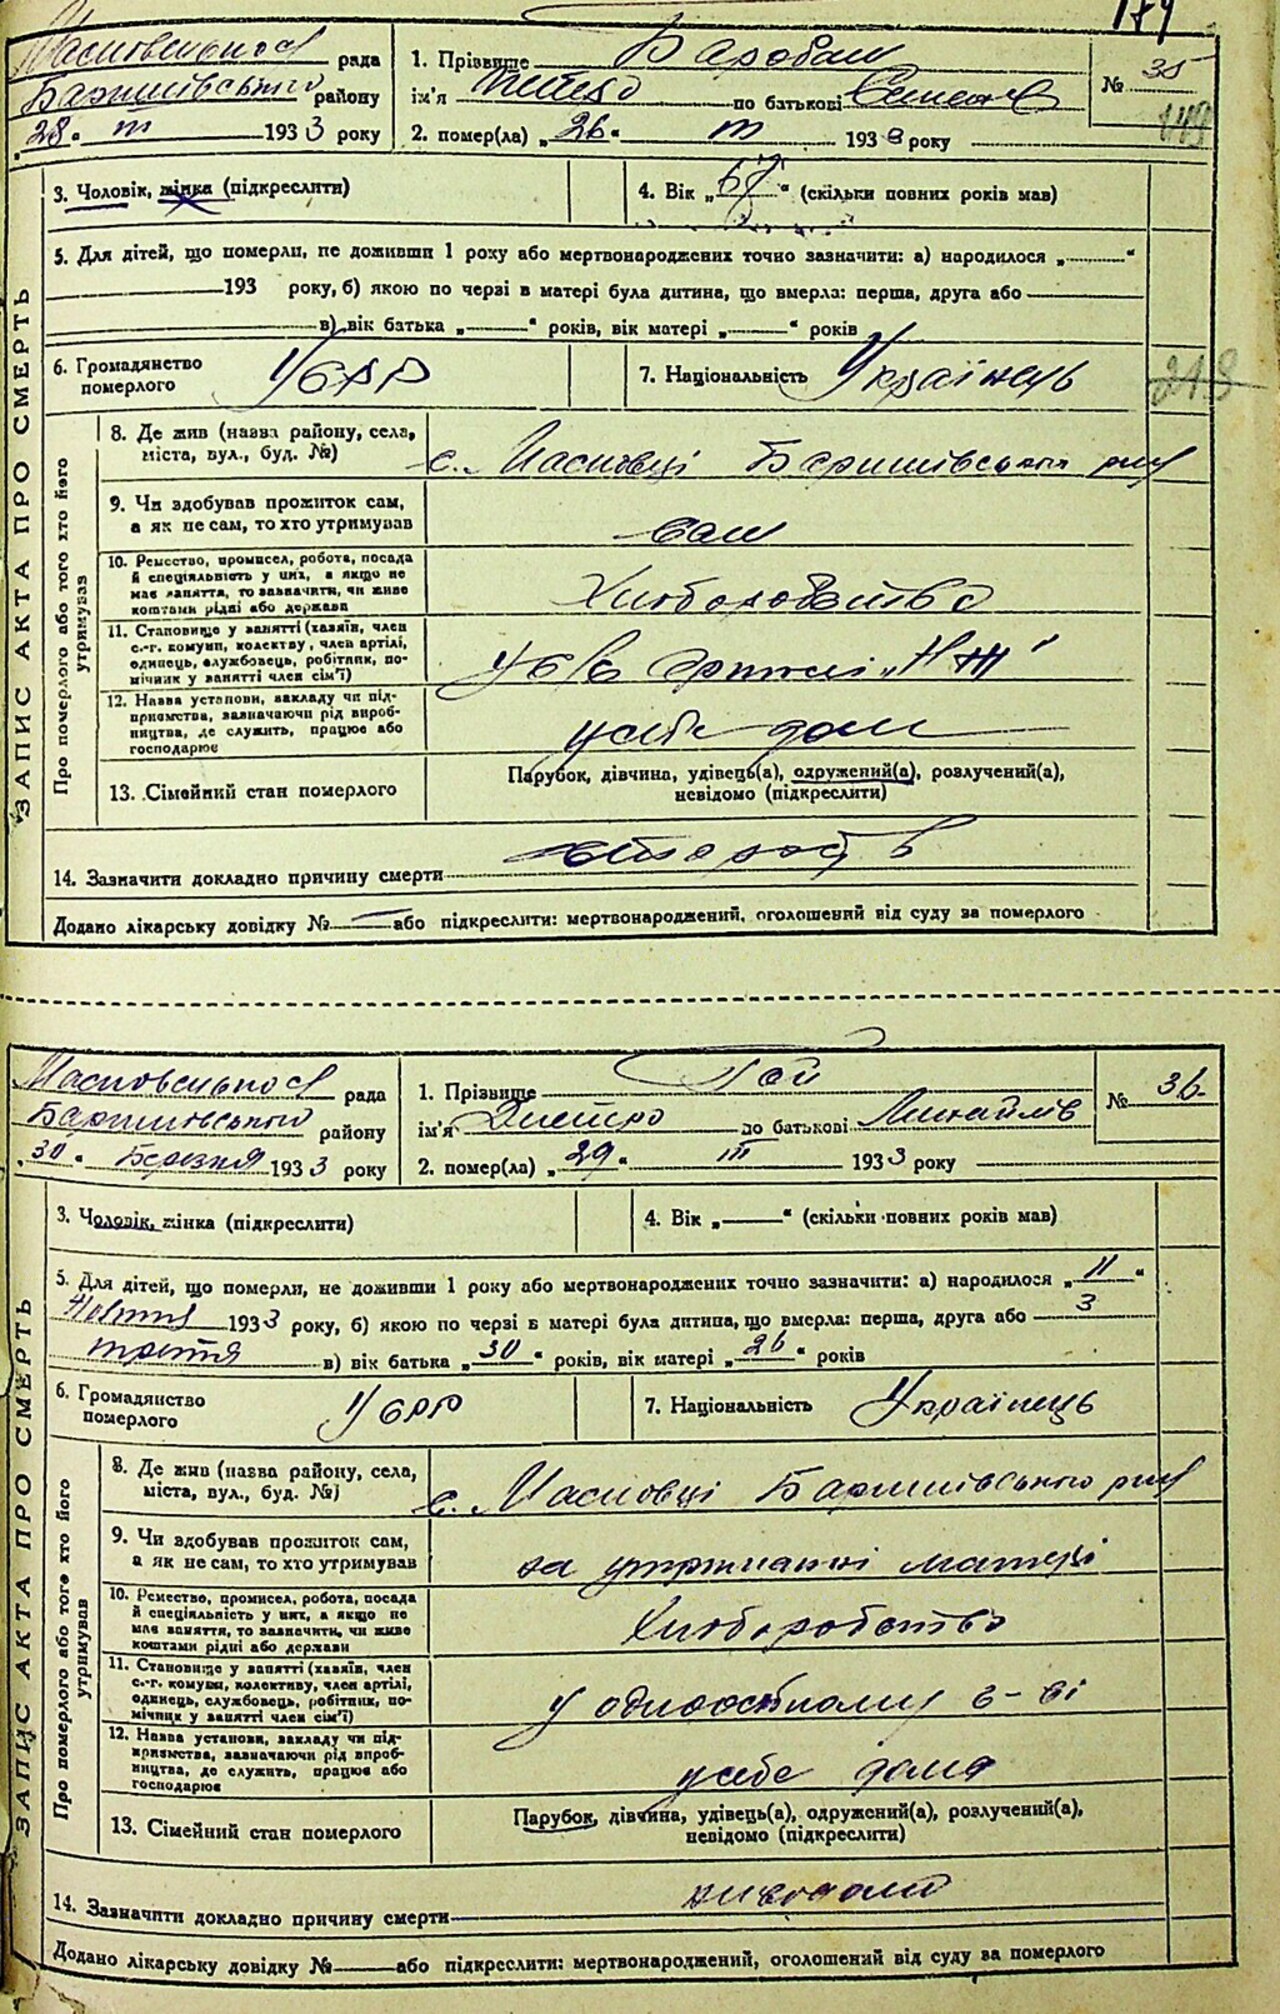 174
Масковецької рада
Баришівського району
„28“ III 1933 року
1. Прізвище Барабаш
ім'я по батькові Семенов
2. помер(ла) „26“ III 1933 року
№ 35
149
3. Чоловік, жінка (підкреслити)
4. Вік „67“ (скільки повних років мав)
5. Для дітей, що померли, не доживши 1 року або мертвонароджених точно зазначити: а) народилося „ “
193 року, б) якою по черзі в матері була дитина, що вмерла: перша, друга або
в) вік батька „ “ років, вік матері „ “ років
6. Громадянство померлого УСРР
7. Національність Українець
213
8. Де жив (назва району, села, міста, вул., буд. №) с. Масківці Баришівського р-ну
9. Чи здобував прожиток сам, а як не сам, то хто утримував сам
10. Ремество, промисел, робота, посада й спеціяльність у них, а якщо не має заняття, то зазначити, чи живе коштами рідні або держави Хліборобство
11. Становище у занятті (хазяїн, член с.-г. комуни, колективу, член артілі, одинець, службовець, робітник, помічник у занятті член сім'ї) у с/г артілі „НЖ“
12. Назва установи, закладу чи підприємства, зазначаючи рід виробництва, де служить, працює або господарює у себе дома
13. Сімейний стан померлого
Парубок, дівчина, удівець(а), одружений(а), розлучений(а), невідомо (підкреслити)
14. Зазначити докладно причину смерти старость
Додано лікарську довідку № або підкреслити: мертвонароджений, оголошений від суду за померлого
ЗАПИС АКТА ПРО СМЕРТЬ
Про померлого або того хто його утримував
Масковецької рада
Баришівського району
„30“ Березня 1933 року
1. Прізвище Гай
ім'я Дмитро по батькові Михайлів
2. помер(ла) „29“ III 1933 року
№ 36
3. Чоловік, жінка (підкреслити)
4. Вік „ “ (скільки повних років мав)
5. Для дітей, що померли, не доживши 1 року або мертвонароджених точно зазначити: а) народилося „11“
1933 року, б) якою по черзі в матері була дитина, що вмерла: перша, друга або 3
третя в) вік батька „30“ років, вік матері „26“ років
6. Громадянство померлого УСРР
7. Національність Українець
8. Де жив (назва району, села, міста, вул., буд. №) с. Масківці Баришівського р-ну
9. Чи здобував прожиток сам, а як не сам, то хто утримував на утриманні матері
10. Ремество, промисел, робота, посада й спеціяльність у них, а якщо не має заняття, то зазначити, чи живе коштами рідні або держави Хліборобство
11. Становище у занятті (хазяїн, член с.-г. комуни, колективу, член артілі, одинець, службовець, робітник, помічник у занятті член сім'ї) у одноосібному г-ві
12. Назва установи, закладу чи підприємства, зазначаючи рід виробництва, де служить, працює або господарює у себе дома
13. Сімейний стан померлого
Парубок, дівчина, удівець(а), одружений(а), розлучений(а), невідомо (підкреслити)
14. Зазначити докладно причину смерти
Додано лікарську довідку № або підкреслити: мертвонароджений, оголошений від суду за померлого
ЗАПИС АКТА ПРО СМЕРТЬ
Про померлого або того хто його утримував